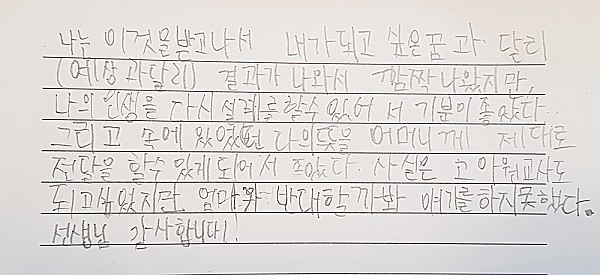 나는 이것을받고나서 내가되고 싶은꿈과 달리
(예상과달리) 결과가 나와서 깜짝나왔지만,
나의 인생을 다시 설레를할수 있어서 기분이좋았다.
그리고 속에 있었던 나의뜻을 어머니께 제대로
전달을 할수있게되어서 좋았다. 사실은 고
되고싶었지만 엄마와 반대할까봐 얘기를하지못했다.
선생님 감사합니다!